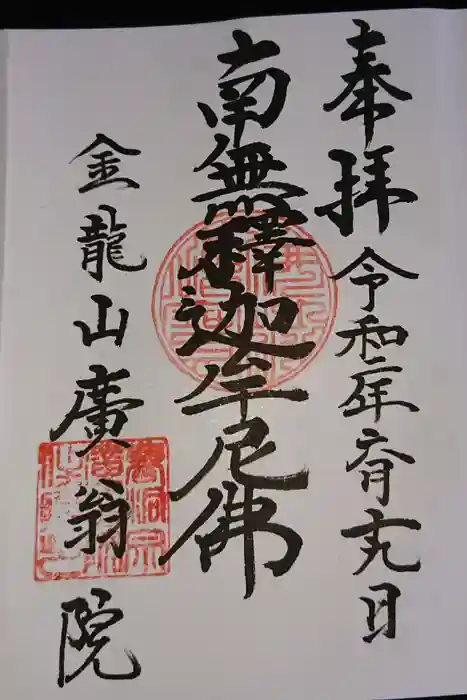 奉拝 令和二年六月十九日
南無釋迦牟尼佛
金龍山廣翁院